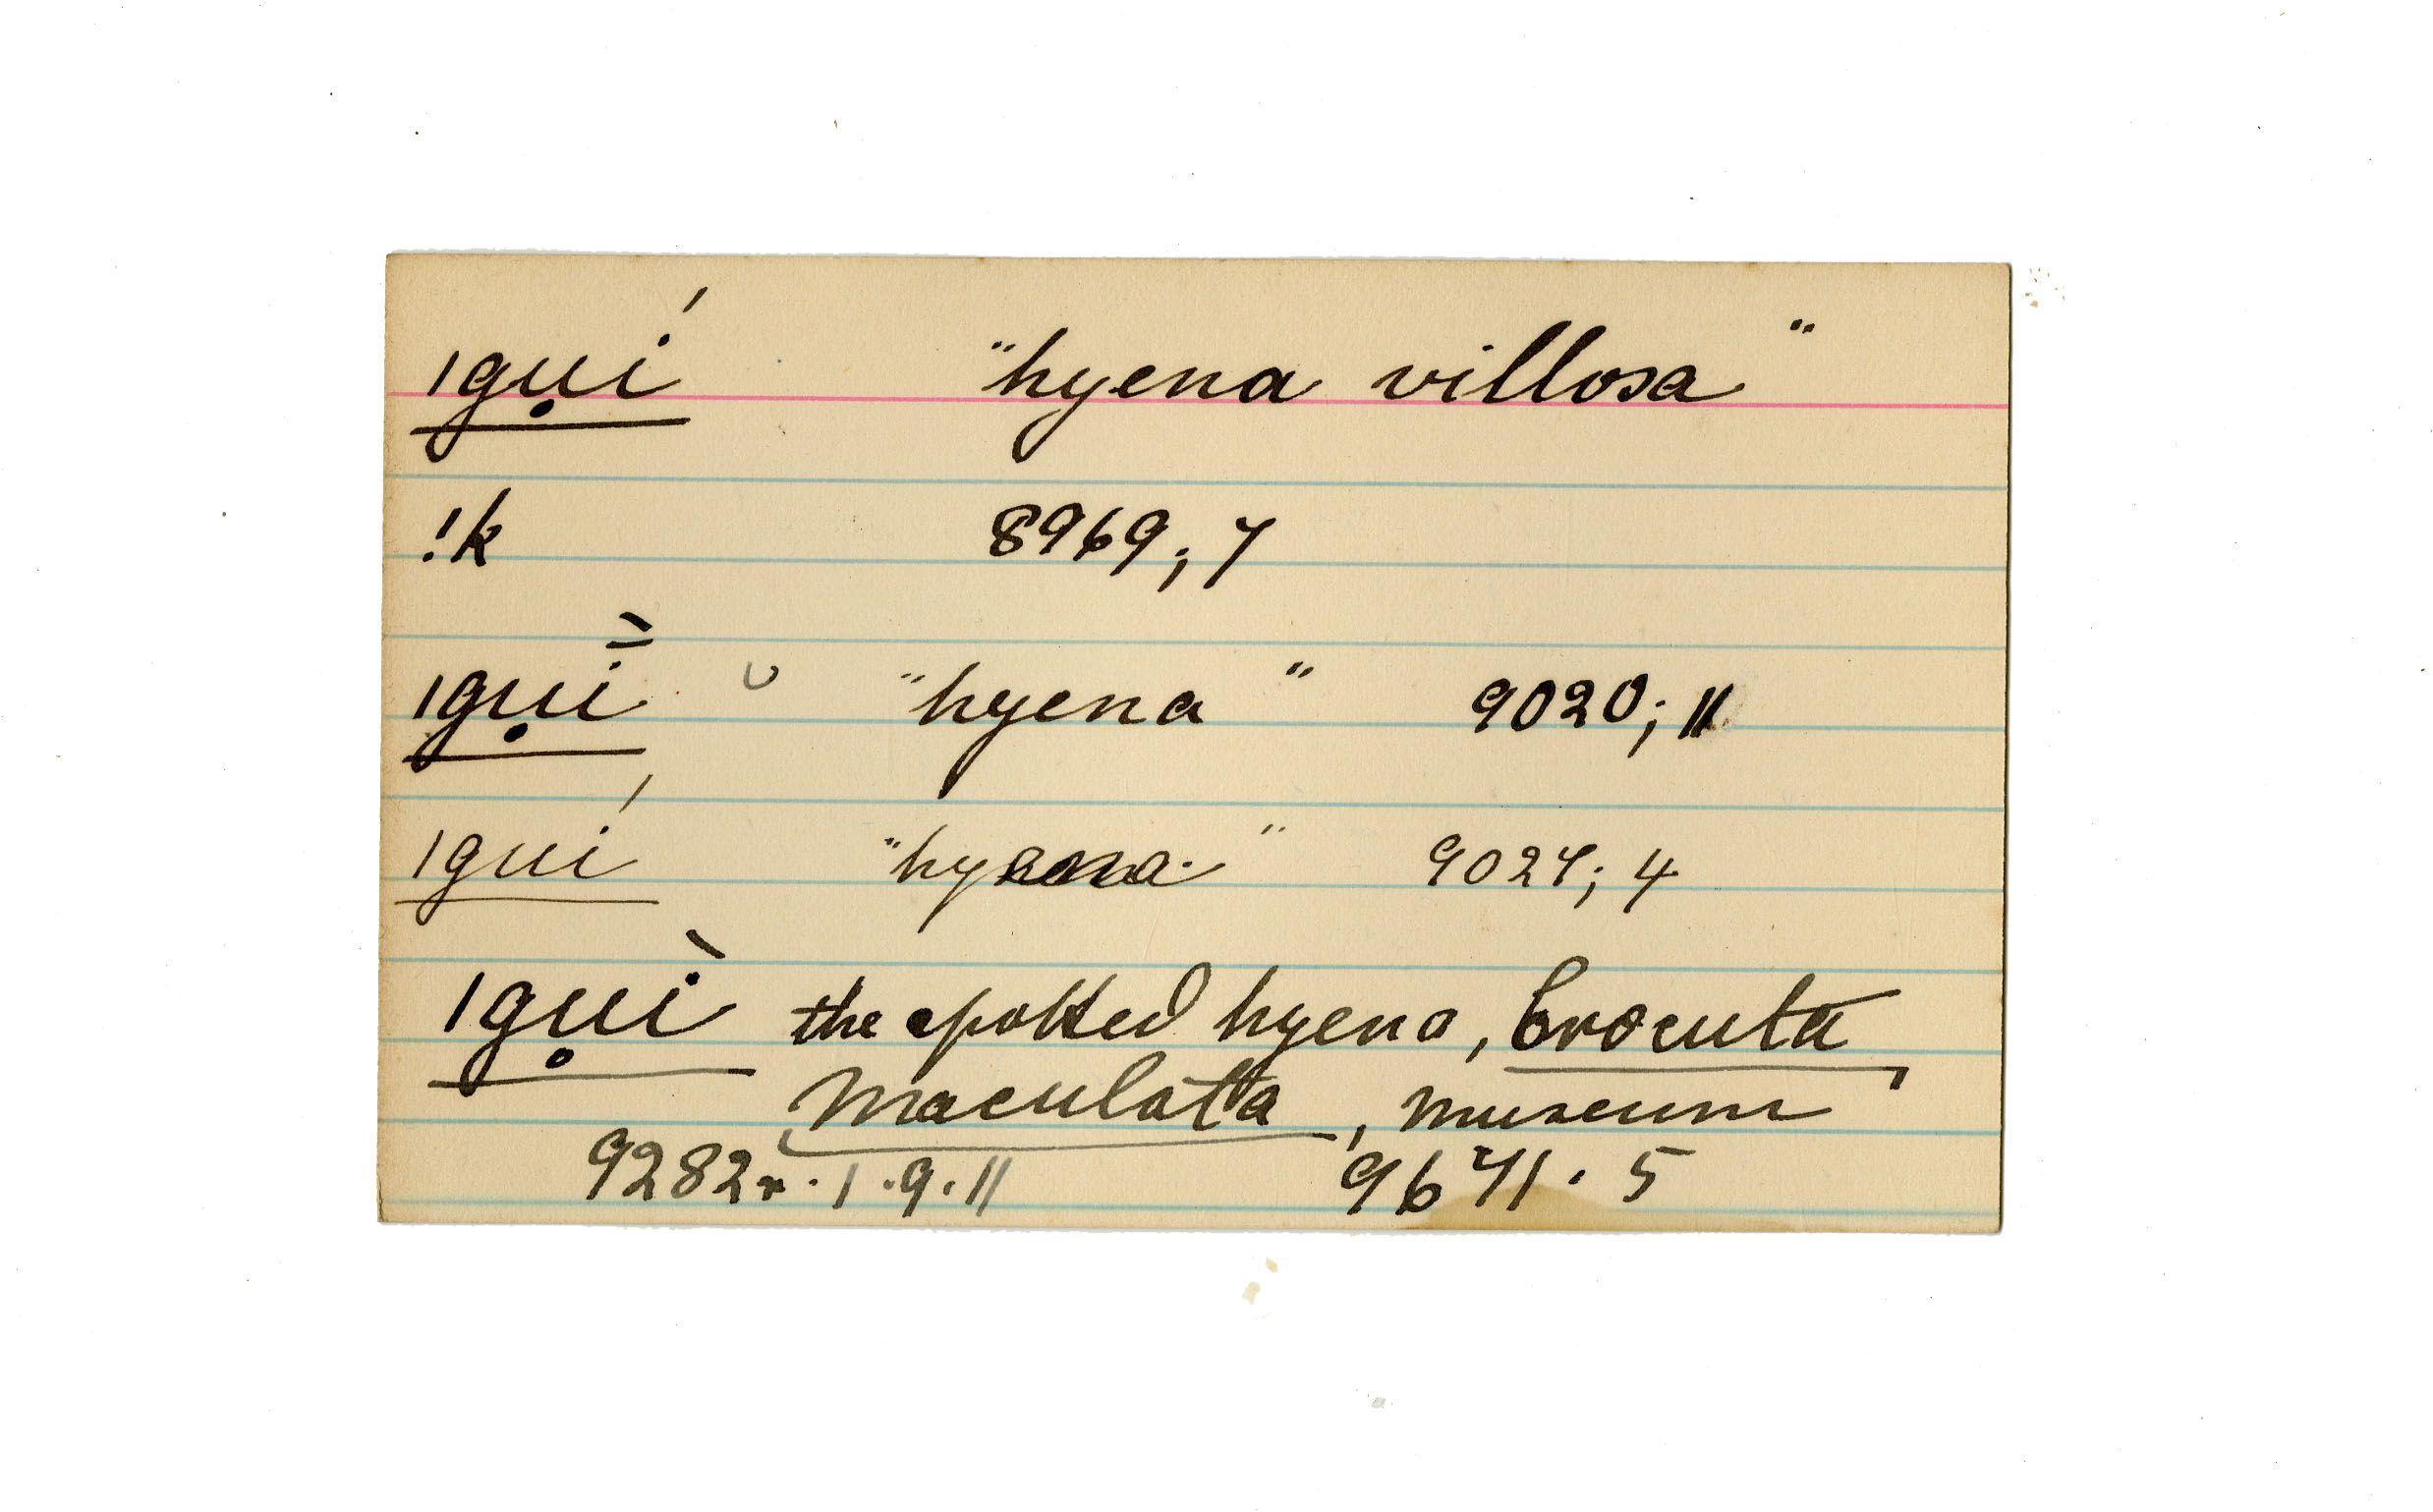 ǀgụí "hyena villosa"
!k 8969; 7
ǀgụī̀ "hyena" 9020; 11
ǀguí "hyaena" 9027; 4
ǀgụì the spotted hyena, Crocuta
Maculata, museum
9282r. 1. 9. 11 9671. 5